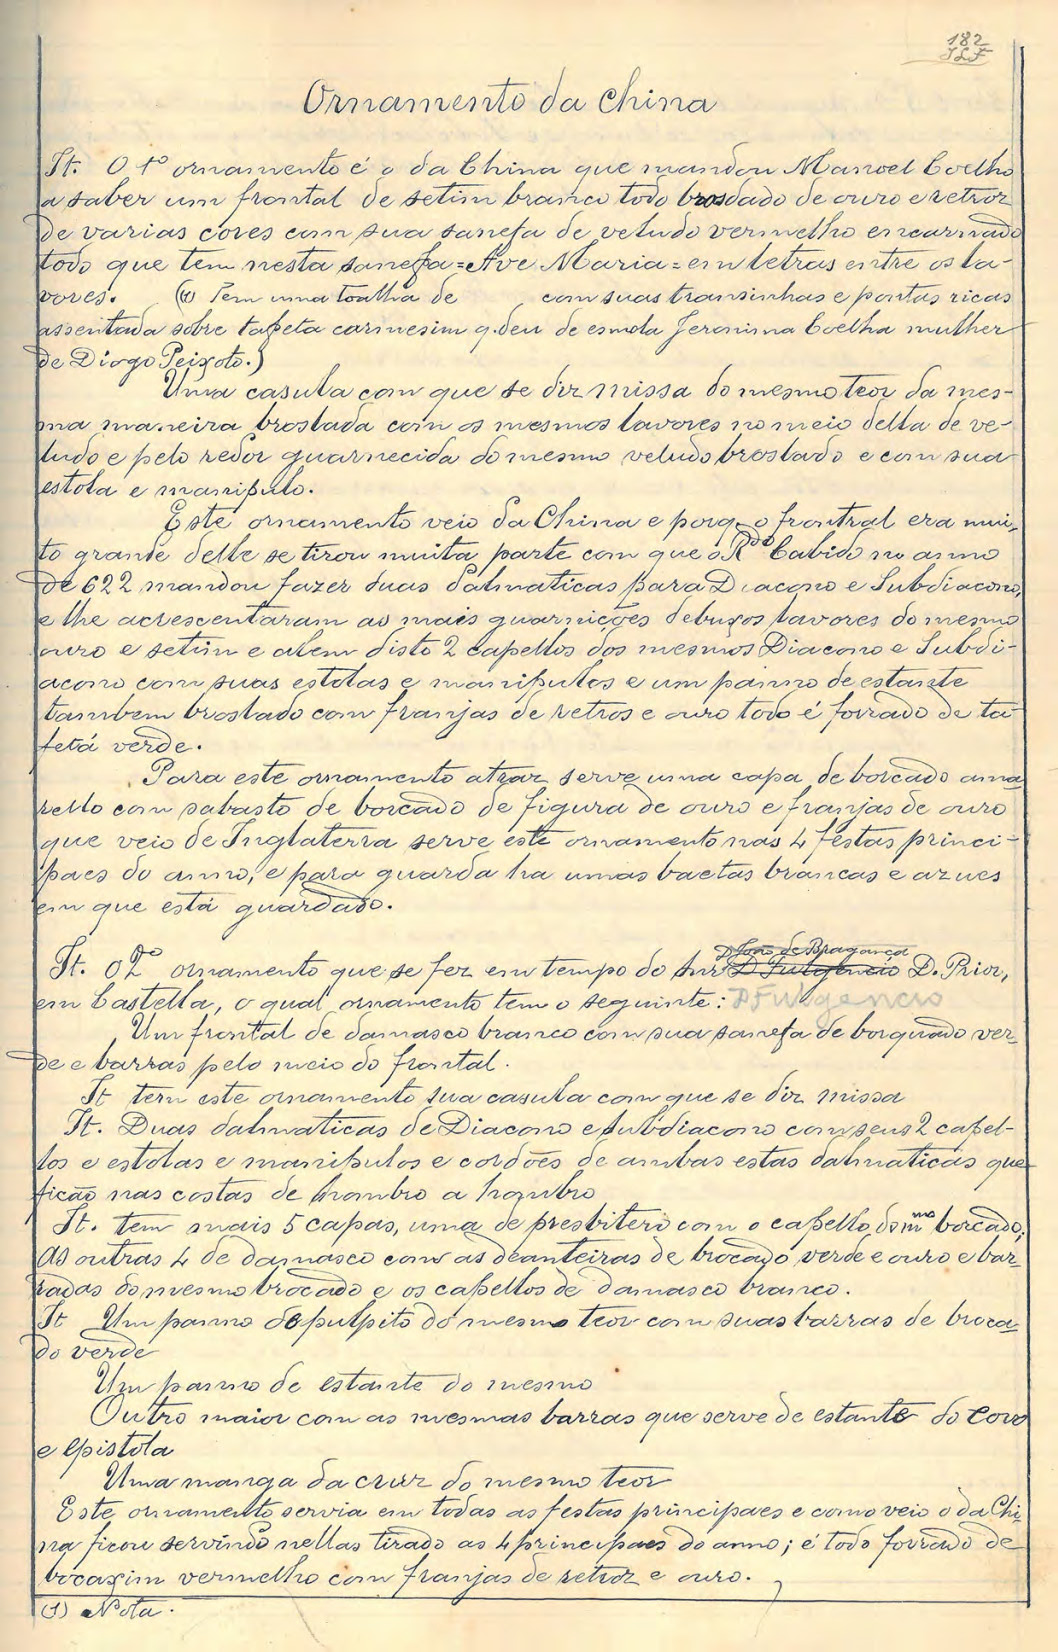 182
Ornamento da China
It. O 1º ornamento é o da China que mandou Manoel Coelho
a saber um frontal de setim branco todo brosdado de ouro e retroz
de varias cores com sua sanefa de veludo vermelho encarnado
todo que tem nesta sanefa = Ave Maria = em letras entre os la-
vores. (1) Tem uma toalha de com suas transinhas e pontas ricas
assentada sobre tafeta carmesim q. deu de esmola Jeronima Coelha mulher
de Diogo Peixoto.)
Uma casula com que se diz missa do mesmo teor da mes-
ma maneira brostada com os mesmos lavores no meio della de ve-
ludo e pelo redor guarnecida do mesmo veludo brostado e com sua
estola e manipulo.
Este ornamento veio da China e porq. o frontral era mui-
to grande delle se tirou muita parte com que o Rdo Cabido no anno
de 622 mandou fazer duas dalmaticas para Diacono e Subdiacono,
e lhe acrescentaram as mais guarnições debuxos lavores do mesmo
ouro e setim e alem disto 2 capellos dos mesmos Diacono e Subdi-
acono com suas estolas e manipulos e um panno de estante
tambem brostado com franjas de retros e ouro todo é forrado de ta-
fetá verde.
Para este ornamento atraz serve uma capa de borcado ama
rello com sabasto de borcado de figura de ouro e franjas de ouro
que veio de Inglaterra serve este ornamento nas 4 festas princi-
paes do anno, e para guarda ha umas baetas brancas e azues
em que está guardado.
D João de Bragança
It. O 2º ornamento que se fez em tempo do Snr D Fulgencio D. Prior,
em Castella, o qual ornamento tem o seguinte: D Fulgencio
Um frontal de damasco branco com sua sanefa de borquado ver-
de e barras pelo meio do frontal.
It tem este ornamento sua casula com que se diz missa
It. Duas dalmaticas de Diacono e subdiacono com seus 2 capel-
los e estolas e manipulos e cordões de ambas estas dalmaticas que
ficão nas costas de hombro a hombro
It. tem mais 5 capas, uma de presbitero com o capello do mmo borcado,
As outras 4 de damasco com as deanteiras de brocado verde e ouro e bar
radas do mesmo brocado e os capellos de damasco branco.
It Um panno de pulpito do mesmo teor com suas barras de broca-
do verde
Um panno de estante do mesmo
Outro maior com as mesmas barras que serve de estante do Coro
e Epistola
Uma manga da cruz do mesmo teor
Este ornamento servia em todas as festas principaes e como veio o da Chi-
na ficou servindo nellas tirado as 4 principaes do anno; é todo forrado de
bocaxim vermelho com franjas de retroz e ouro.
(1) Nota.